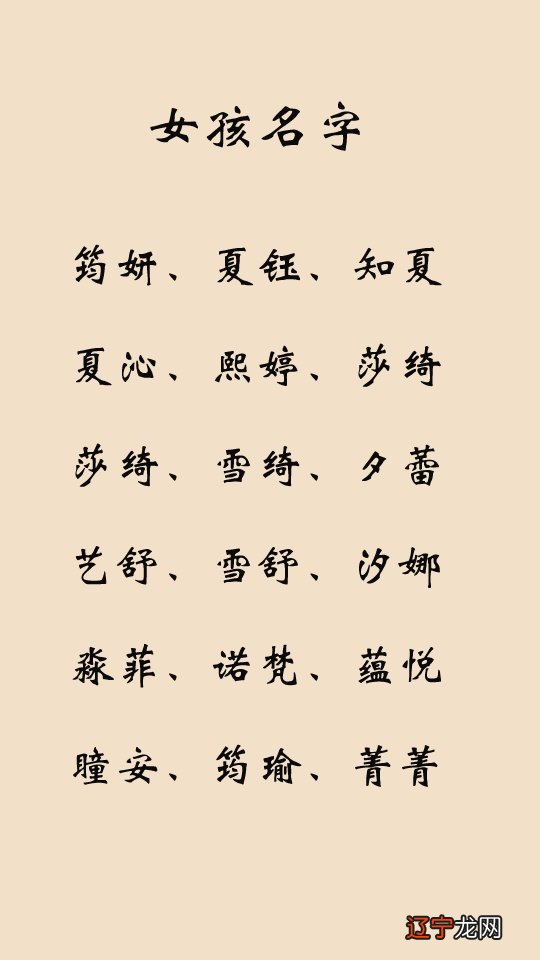 女孩名字
筠妍、夏钰、知夏
夏沁、熙婷、莎绮
莎绮、雪绮、夕蕾
艺舒、雪舒、汐娜
淼菲、诺梵、蕴悦
曈安、筠瑜、菁菁
辽宁龙网